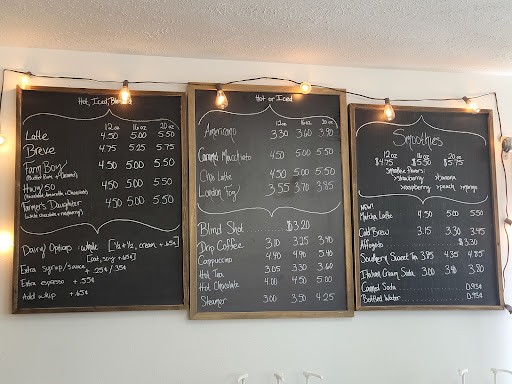 Hot, Iced, Blended
12oz 16oz 20oz
Latte 4.50 5.00 5.50
Breve 4.75 5.25 5.75
Farm Boy 4.50 5.00 5.50
Hwy 50 4.50 5.00 5.50
Farmer's Daughter 4.50 5.00 5.50
(white chocolate + raspberry)
Dairy Options - whole [1/2 + 1/2, cream +.65¢]
[oat, soy +.65¢]
Extra syrup/sauce
+ .25¢/.35¢
Extra espresso + .55¢
Add whip +.65¢
Hot or Iced
12oz 16oz 20oz
Americano 3.30 3.60 3.90
Caramel Macchiato 4.50 5.00 5.50
Chai Latte 4.50 5.00 5.50
London Fog 3.55 3.70 3.85
Blind Shot $3.20
Drip Coffee 3.10 3.25 3.40
Cappuccino 4.40 4.90 5.40
Hot Tea 3.05 3.30 3.60
Hot Chocolate 4.00 4.50 5.00
Steamer 3.00 3.50 4.25
Smoothies
12oz 16oz 20oz
$4.75 $5.50 $5.75
Smoothie flavors:
>strawberry >banana
>raspberry >peach >mango
NEW!
Matcha Latte 4.50 5.00 5.50
Cold Brew 3.15 3.30 3.45
Affogato $3.30
Southern Sweet Tea 3.85 4.35 4.85
Italian Cream Soda 3.00 3.40 3.80
Canned Soda 0.93¢
Bottled Water 0.93¢